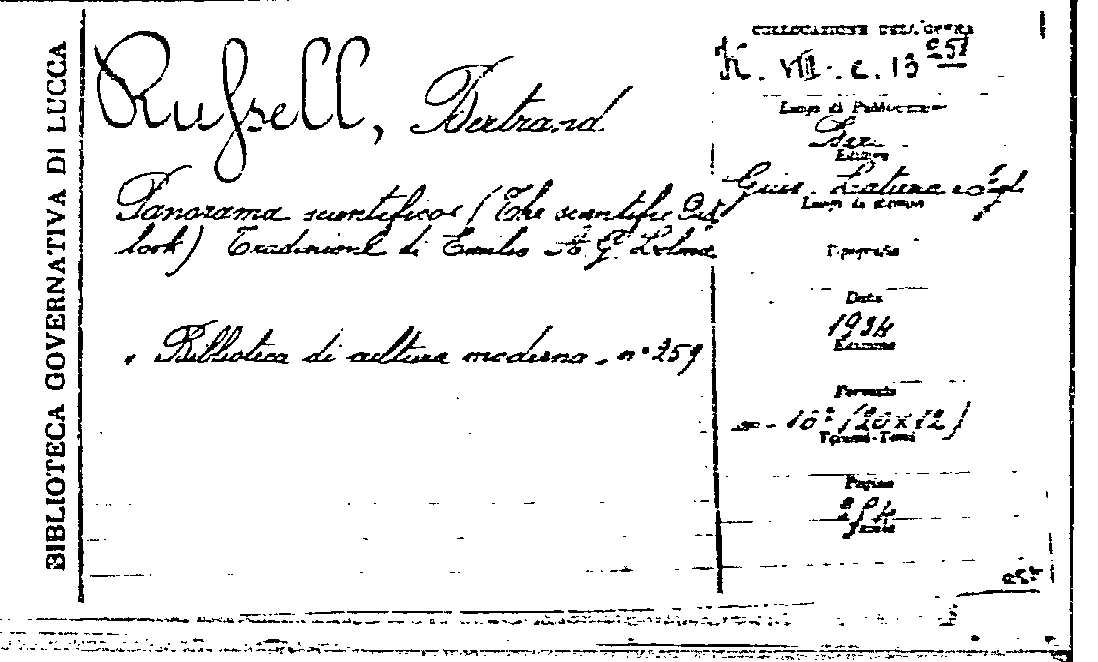 BIBLIOTECA GOVERNATIVA DI LUCCA
Russell, Bertrand
Panorama scientifico (The scientific Out
look) Traduzione di Emilio A. G. Loliva
« Biblioteca di cultura moderna » n° 259
COLLOCAZIONE DELL'OPERA
K. VIII. c. 13 257
Luogo di Pubblicazione
Bari
Editore
Gius. Laterza e figli
Luogo di stampa
Tipografia
Data
1934
Edizione
Formato
16° (20x12)
Volumi-Tomi
Pagine
Tavole